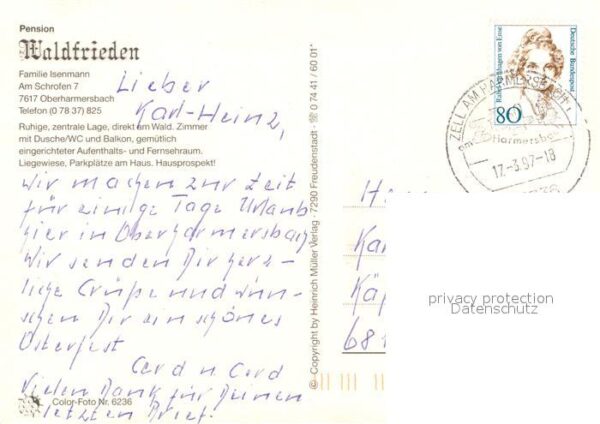 Pension
Waldfrieden
Familie Isenmann
Am Schrofen 7
7617 Oberharmersbach
Telefon (0 78 37) 825
Ruhige, zentrale Lage, direkt am Wald. Zimmer
mit Dusche/WC und Balkon, gemütlich
eingerichteter Aufenthalts- und Fernsehraum.
Liegewiese, Parkplätze am Haus. Hausprospekt!
Lieber
Karl-Heinz,
Wir machen zur Zeit
für einige Tage Urlaub
hier in Oberharmersbach
Wir senden Dir herz-
liche Grüße und wün-
schen Dir ein schönes
Osterfest
Gerd u Gerd
Vielen Dank für Deinen
letzten Brief.
Color-Foto Nr. 6236
© Copyright by Heinrich Müller Verlag · 7290 Freudenstadt · ☎ 0 74 41 / 60 01*
Rahel Varnhagen von Ense
Deutsche Bundespost
80
ZELL AM HARMERSBACH
am Harmersbach
17.-3.97-18
H
Ka
Kä
681
privacy protection
Datenschutz